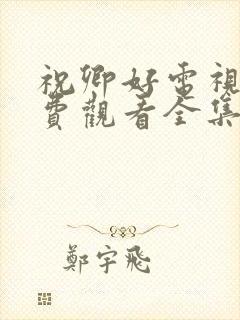 祝卿好電視
費觀看全集
鄭宇飛